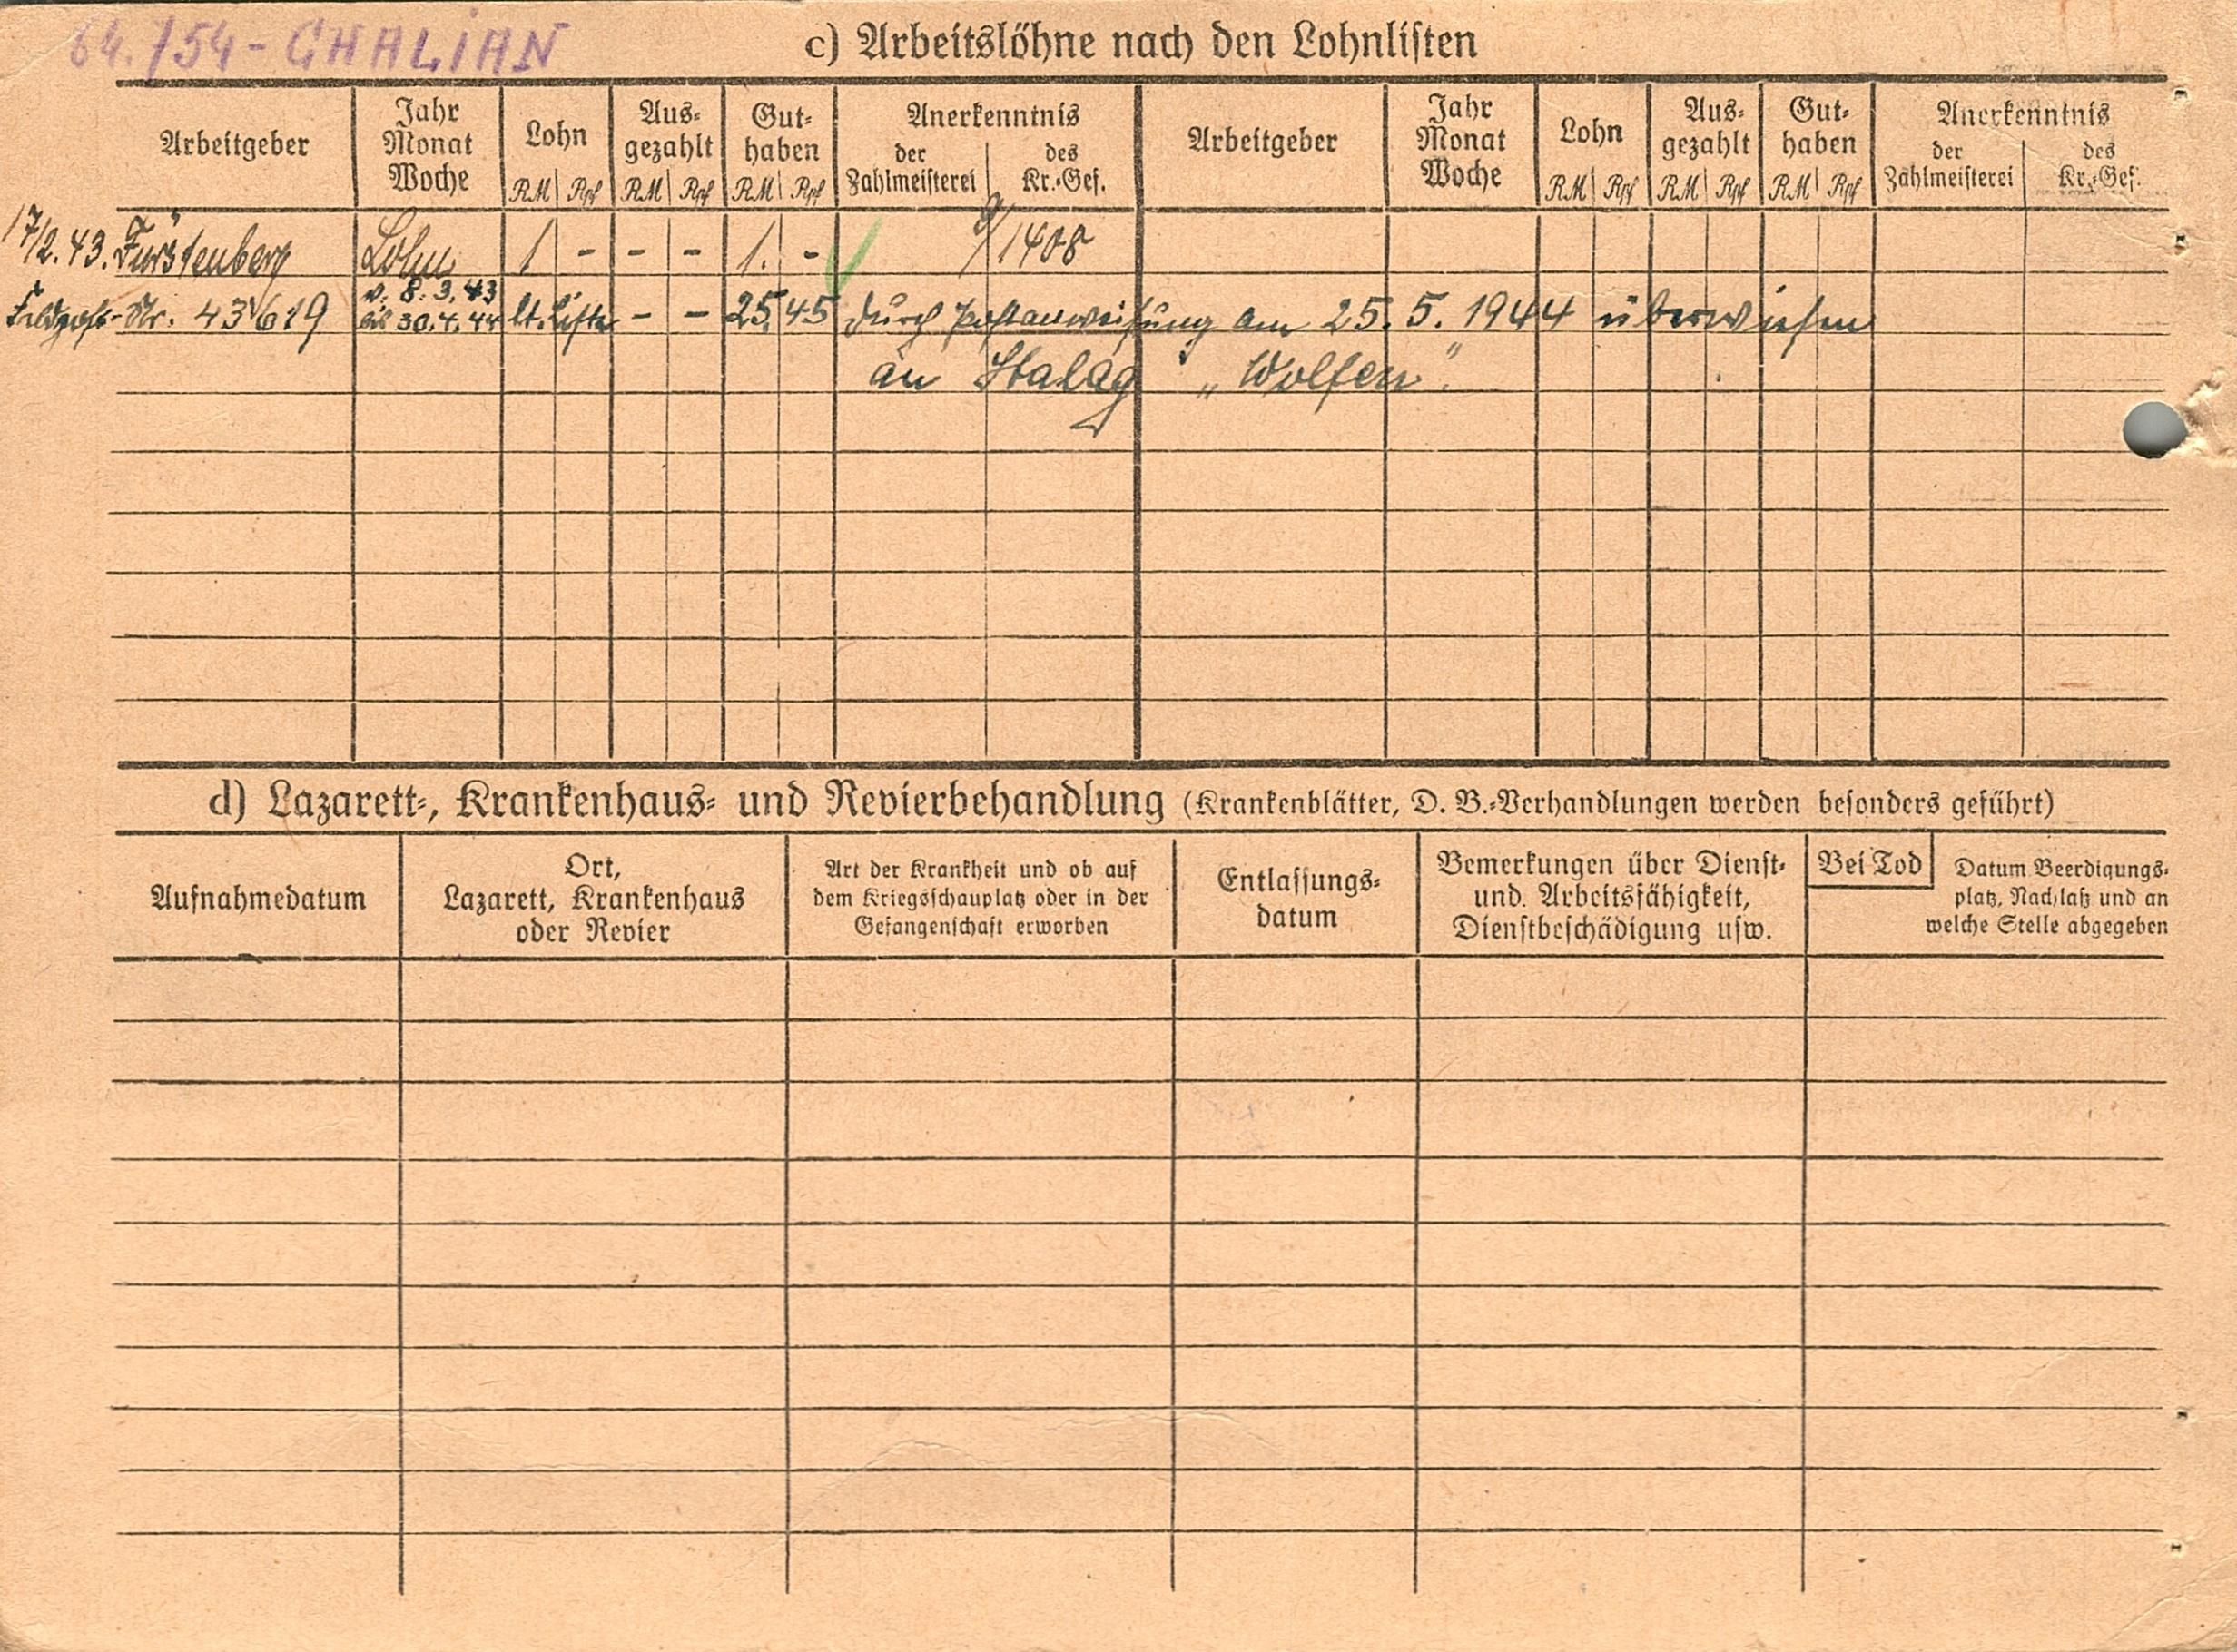 64./54 - CHALIAN
c) Arbeitslöhne nach den Lohnlisten
Arbeitgeber
Jahr
Monat
Woche
Lohn
RM Rpf
Aus-
gezahlt
RM Rpf
Gut-
haben
RM Rpf
Anerkenntnis
der
Zahlmeisterei
des
Kr.-Gef.
Arbeitgeber
Jahr
Monat
Woche
Lohn
RM Rpf
Aus-
gezahlt
RM Rpf
Gut-
haben
RM Rpf
Anerkenntnis
der
Zahlmeisterei
des
Kr.-Gef.
17/2.43. Fürstenberg Lohn 1 - - - 1. - /1408
Feldpost-Nr. 43619 v. 8.3.43 bis 30.4.44 lt. Liste - - 25,45 durch Postanweisung am 25.5.1944 überwiesen
an Stalag „Wolfen".
d) Lazarett-, Krankenhaus- und Revierbehandlung (Krankenblätter, D. B.-Verhandlungen werden besonders geführt)
Aufnahmedatum
Ort,
Lazarett, Krankenhaus
oder Revier
Art der Krankheit und ob auf
dem Kriegsschauplatz oder in der
Gefangenschaft erworben
Entlassungs-
datum
Bemerkungen über Dienst-
und. Arbeitsfähigkeit,
Dienstbeschädigung usw.
Bei Tod
Datum Beerdigungs-
platz, Nachlaß und an
welche Stelle abgegeben